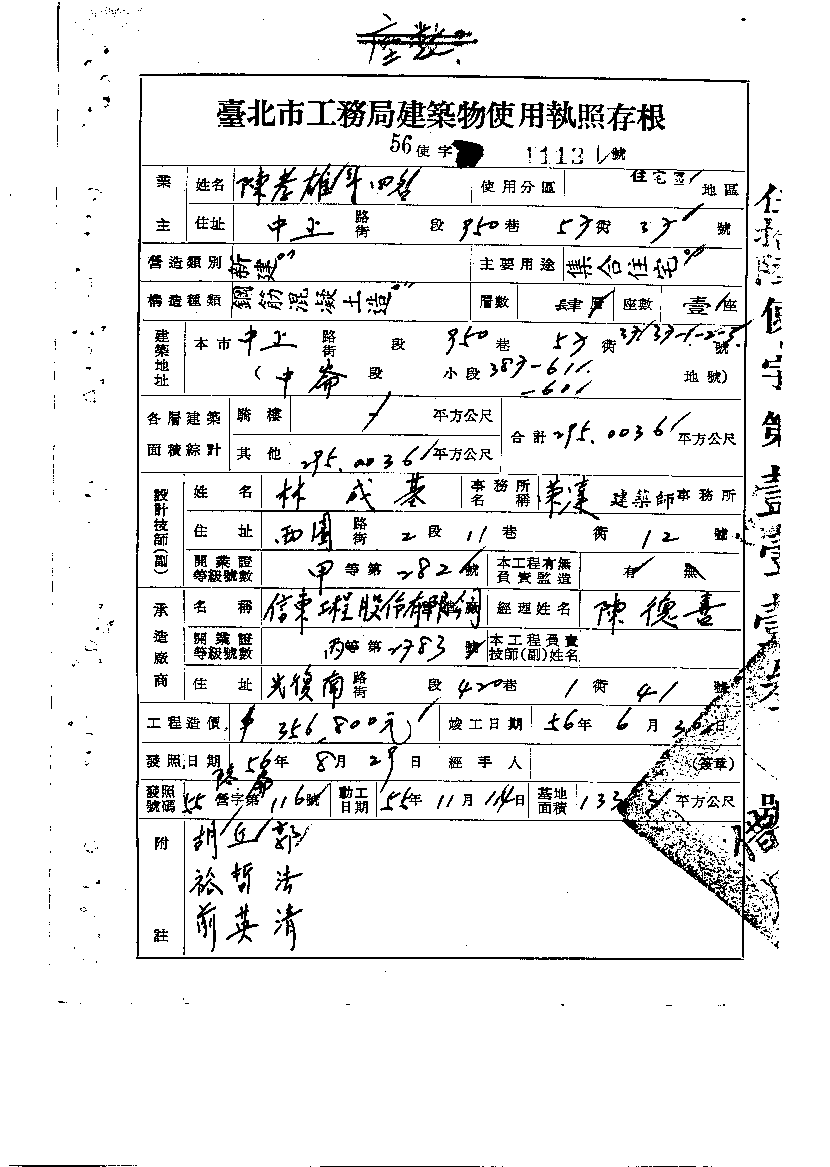 臺北市工務局建築物使用執照存根
56使字 1113 號
業主 姓名 陳孝雄等四名 使用分區 住宅區 地區
住址 中正 路街 段 950巷 5弄街 3 號
營造類別 新建 主要用途 集合住宅
構造種類 鋼筋混凝土造 層數 肆層 座數 壹座
建築地址 本市中正 路街 段 950巷 5弄街 號
(中崙段 小段 383-61 -60 地號)
各層建築面積綜計 騎樓 平方公尺 合計 295.0036平方公尺
其他 295.0036平方公尺
設計技師(副) 姓名 林成基 事務所名稱 建築師事務所
住址 西園 路街 2段 11巷 街 12號
開業證等級號數 甲等第282號 本工程有無負責監造 有 無
承造廠商 名稱 信東工程股份有限公司 經理姓名 陳德善
開業證等級號數 丙等第2783號 本工程負責技師(副)姓名
住址 光復南 路街 段 420巷 1街 41號
工程造價 356,800元 竣工日期 56年6月30日
發照日期 56年8月29日 經手人 (簽章)
發照號碼 55營字第116號 動工日期 55年11月14日 基地面積 133 平方公尺
附註 胡 丘 郭
裕 哲 法
前 英 清
使字第壹壹壹